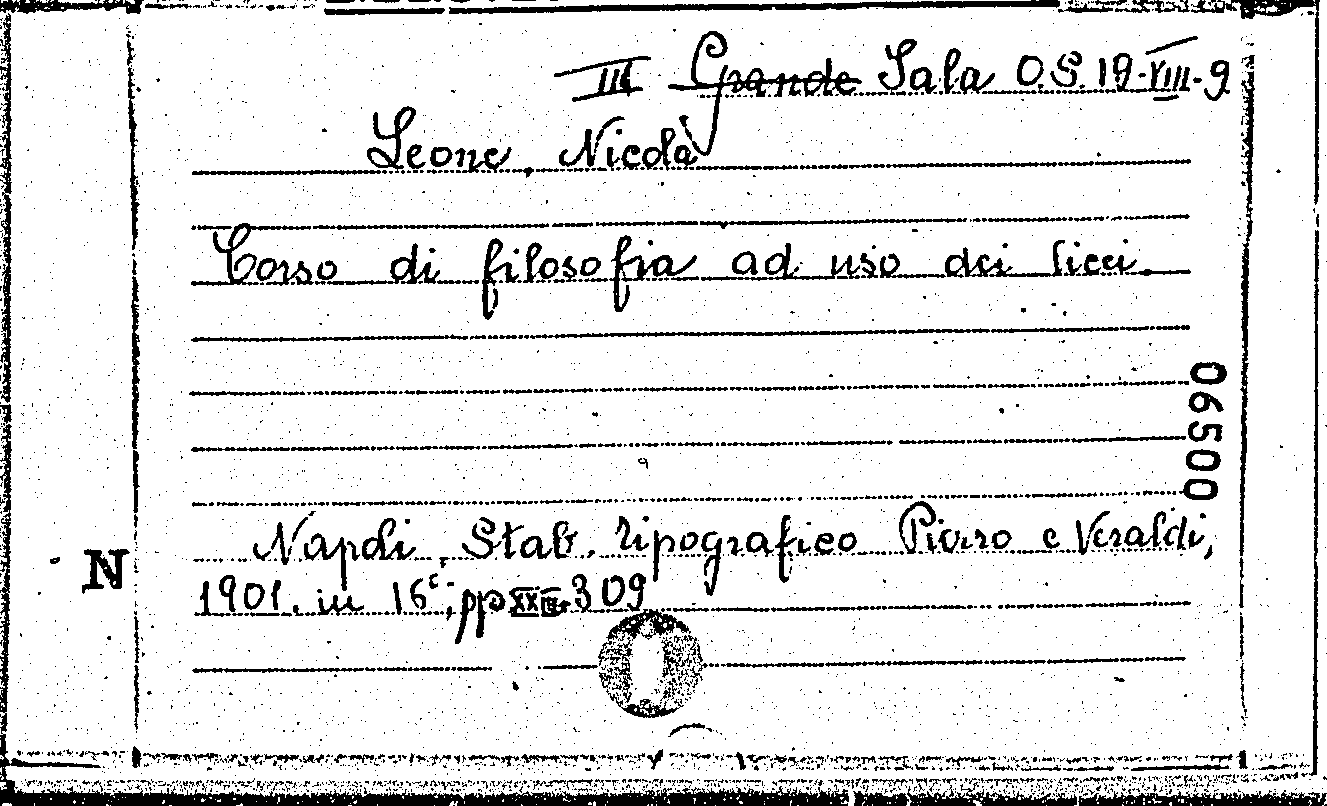 III Grande Sala O.S. 19-VIII-9
Leone, Nicola
Corso di filosofia ad uso dei licei.
06500
Napoli, Stab. tipografico Pierro e Veraldi,
N
1901. in 16°, pp. 309